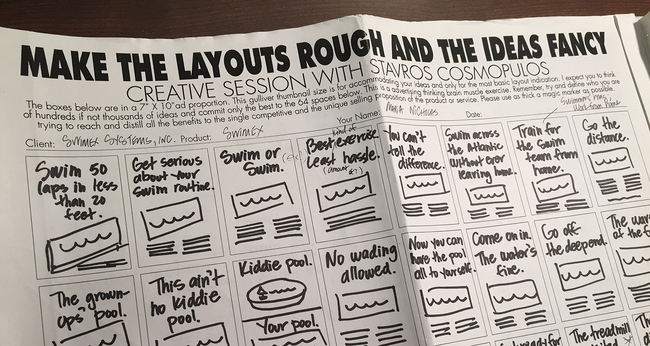 MAKE THE LAYOUTS ROUGH AND THE IDEAS FANCY
CREATIVE SESSION WITH STAVROS COSMOPULOS
The boxes below are in a 7" X 10" ad proportion. This gulliver thumbnail size is for accommodating your ideas and only for the most basic layout indication. I expect you to think
of hundreds if not thousands of ideas and commit only the best to the 64 spaces below. This is a advertising thinking brain muscle exercise. Remember, try and define who you are
trying to reach and distill all the benefits to the single competitive and the unique selling proposition of the product or service. Please use as thick a magic marker as possible.
Client: SWIMEX SYSTEMS, INC. Product: SWIMEX Your Name: MARIA NICHOLAS Date:
Swim 50
laps in less
than 20
feet.
Get serious
about your
swim routine.
Swim or
Swim.
Best exercise.
Least hassle.
You can't
tell the
difference.
Swim across
the Atlantic
without ever
leaving home.
Train for
the swim
team from
home.
Swimmers
Work from Home
Go the
distance.
The grown-
ups' pool.
This ain't
no kiddie
pool.
Kiddie pool.
Your pool.
No wading
allowed.
Now you can
have the pool
all to yourself.
Come on in.
The water's
fine.
Go off
the deep end.
The wave
of the
The treadmill